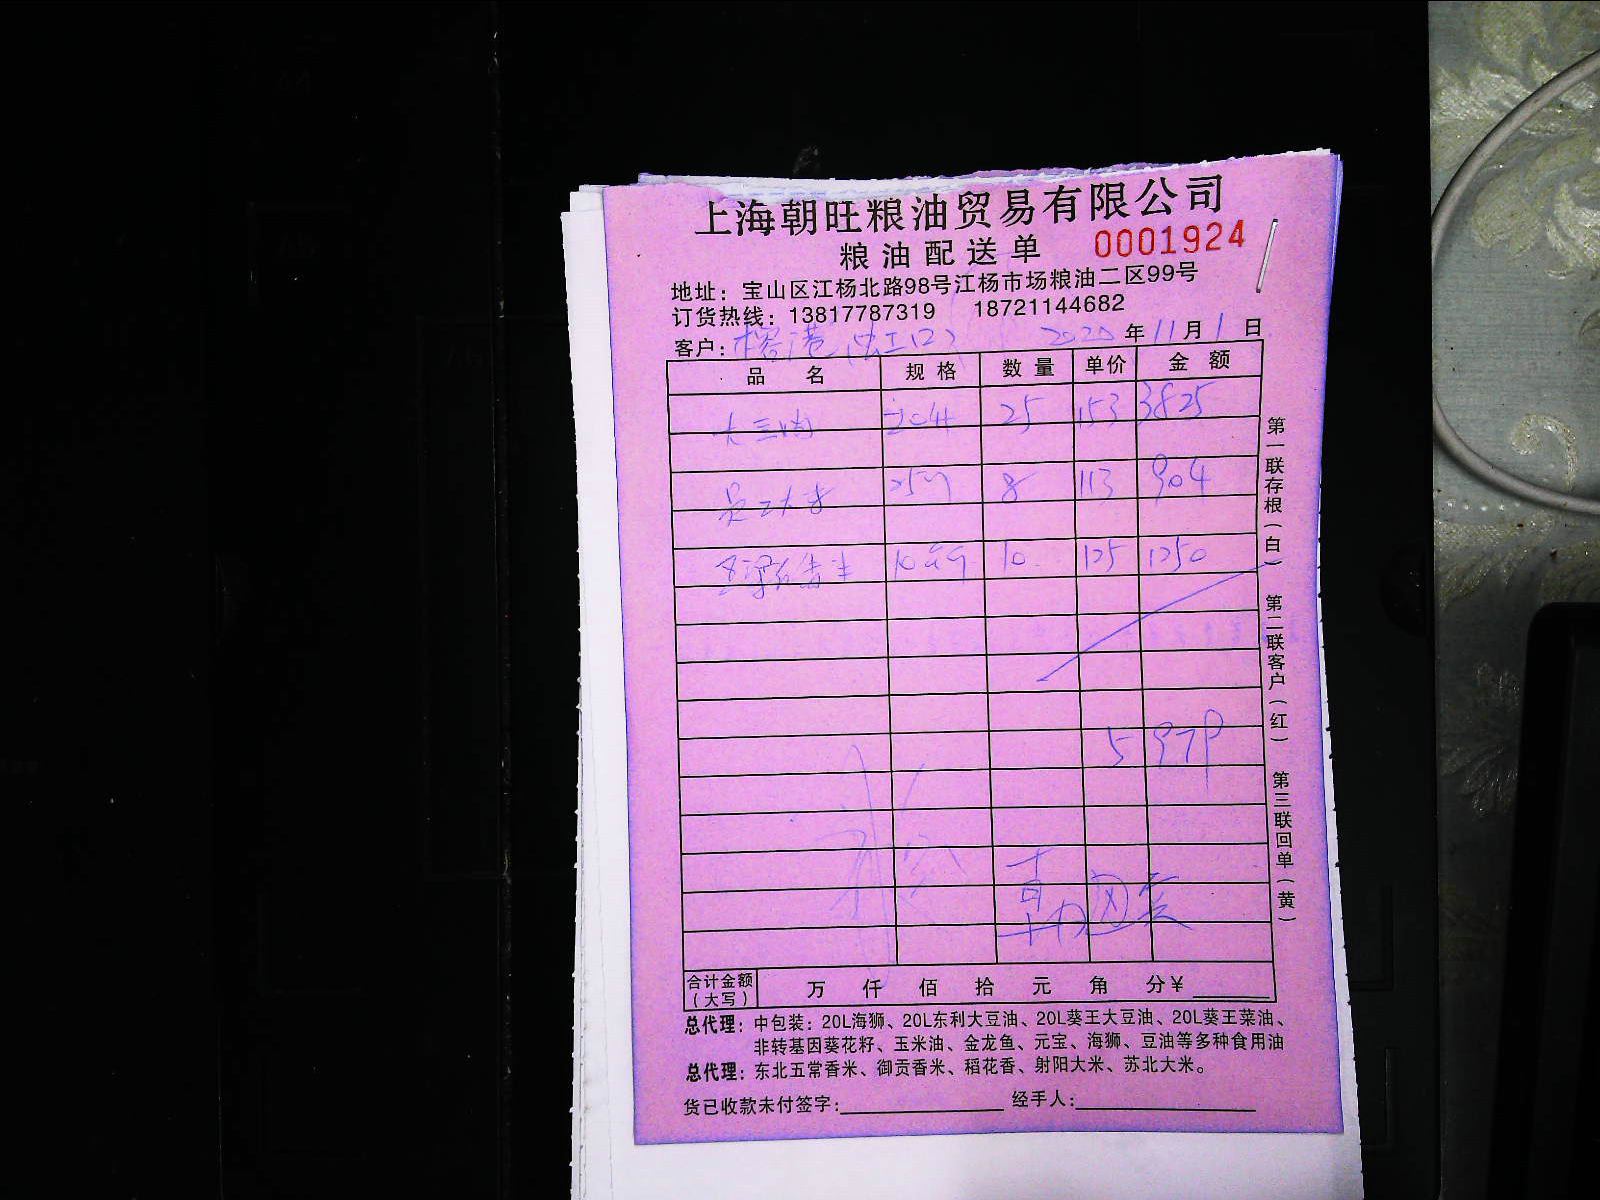 上海朝旺粮油贸易有限公司
粮油配送单 0001924
地址：宝山区江杨北路98号江杨市场粮油二区99号
订货热线：13817787319 18721144682
客户：榕港（虹口） 2020年11月1日
品名 规格 数量 单价 金额
25 153 3825
员工大米 8 113 904
10 125 1250
5979
合计金额（大写） 万 仟 佰 拾 元 角 分¥
总代理：中包装：20L海狮、20L东利大豆油、20L葵王大豆油、20L葵王菜油、
非转基因葵花籽、玉米油、金龙鱼、元宝、海狮、豆油等多种食用油
总代理：东北五常香米、御贡香米、稻花香、射阳大米、苏北大米。
货已收款未付签字： 经手人：
第一联存根（白） 第二联客户（红） 第三联回单（黄）